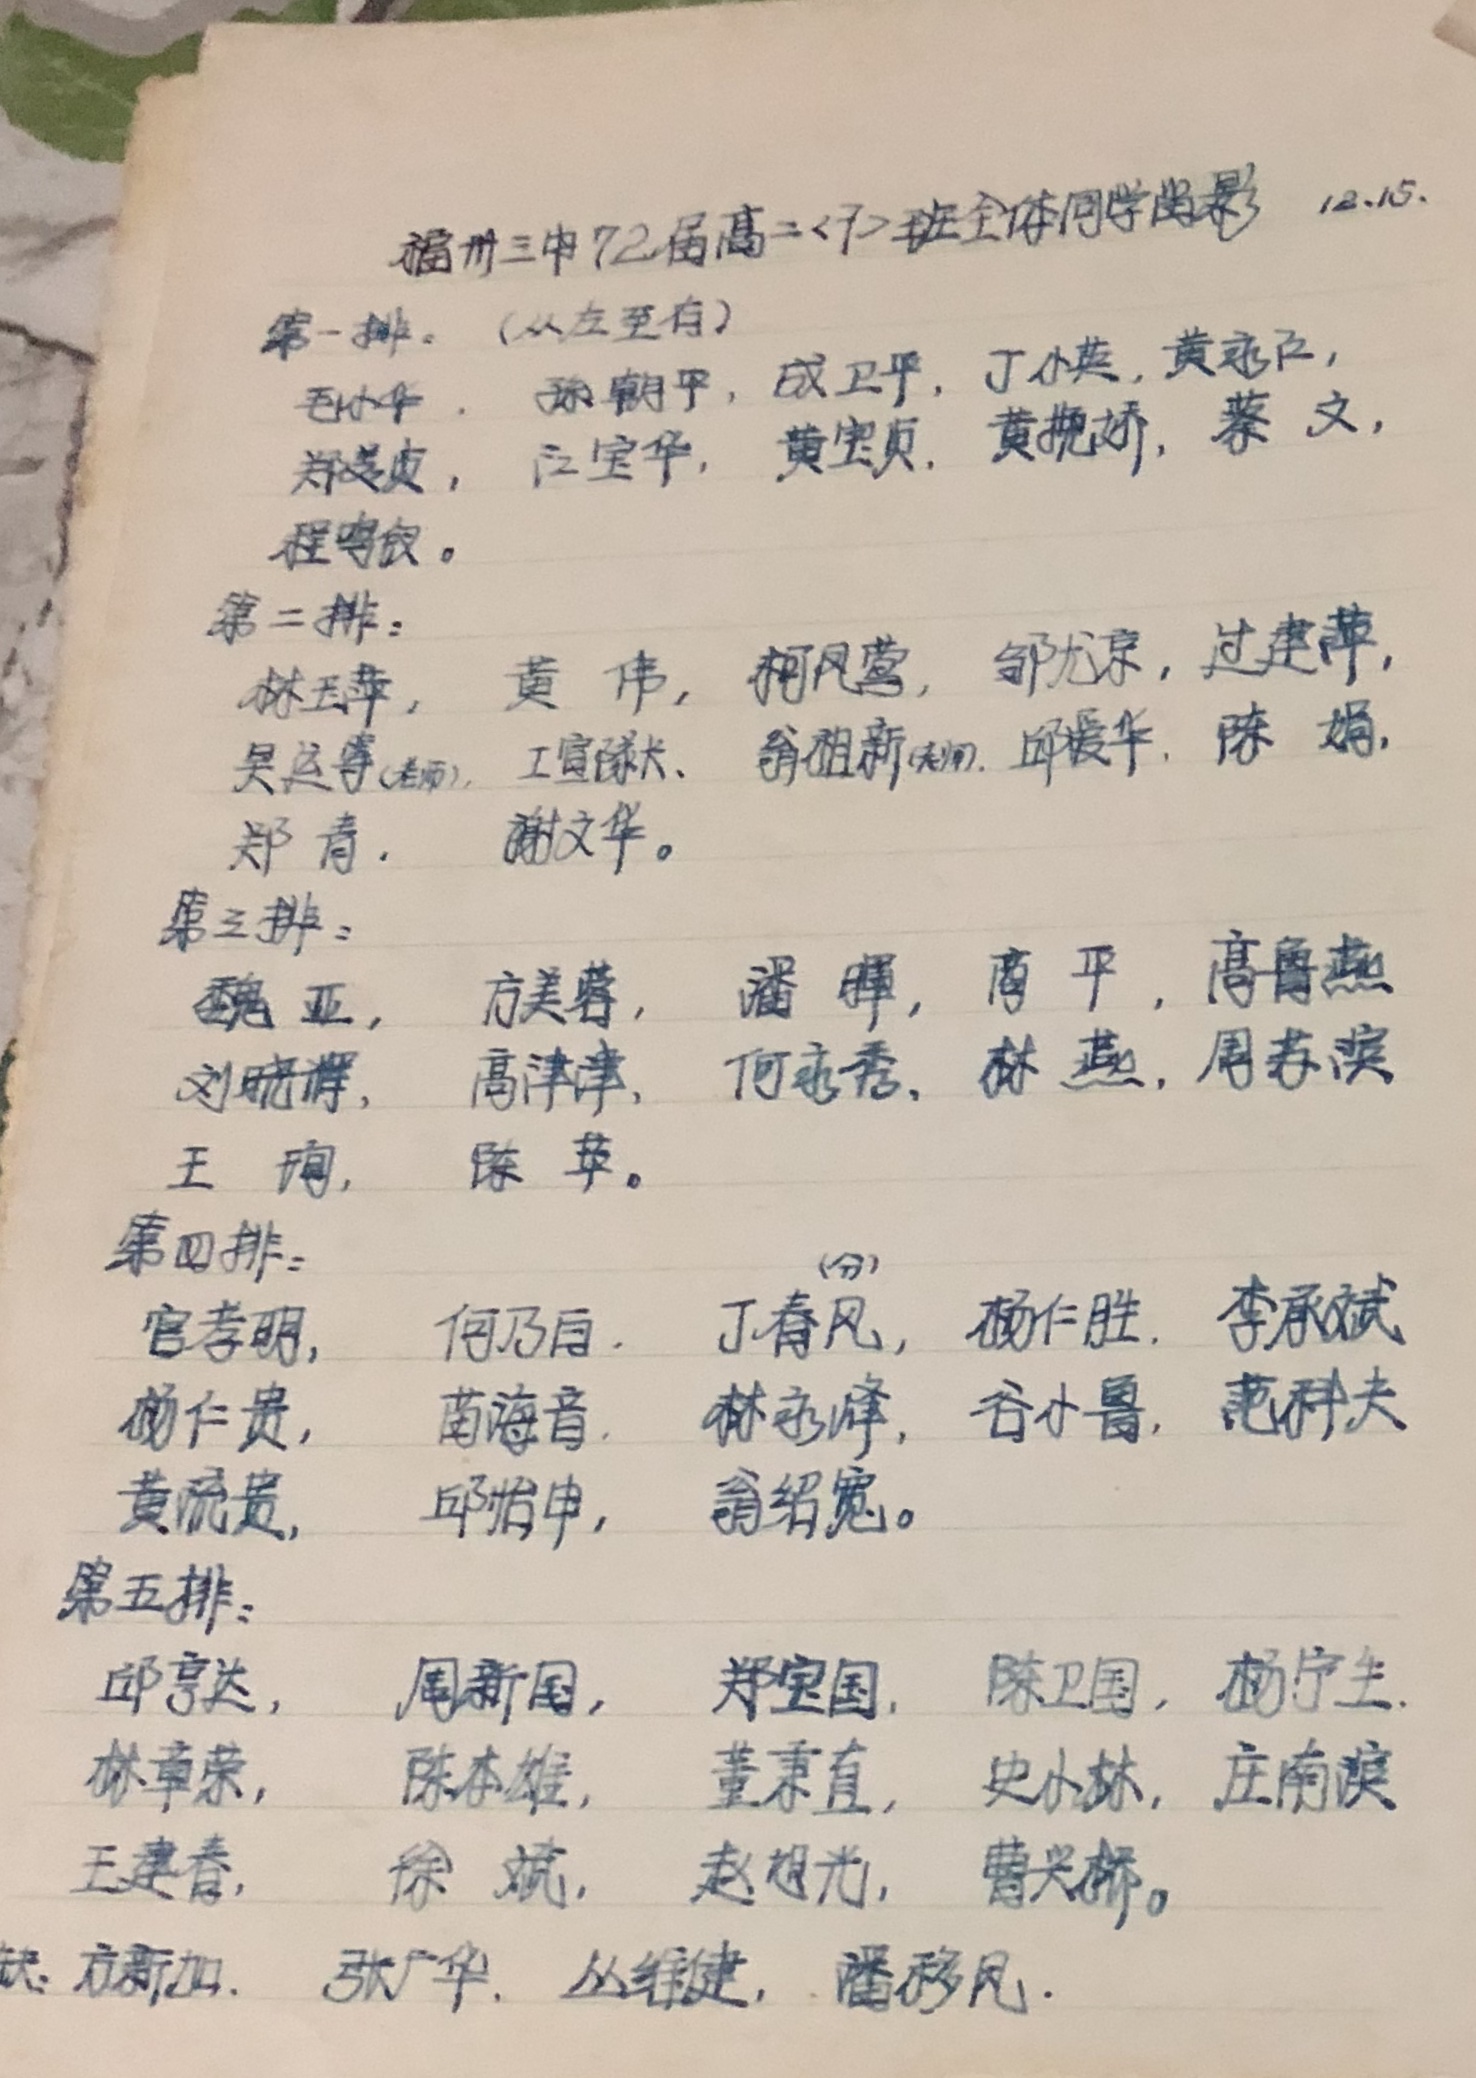 福州三中72届高二<7>班全体同学留影 12.15.
第一排。（从左至右）
毛小华. 孙朝平, 成卫平, 丁小英, 黄永仁,
郑 贞, 江宝华, 黄宝贞, 黄挽娇, 蔡 文,
程鸣钗。
第二排:
林玉华, 黄 伟, 柯凤莺, 邹尤京, 过建萍,
吴运等(老师), 工宣队长、 翁祖新(老师). 邱爱华, 陈 娟,
郑 青. 谢文华。
第三排:
魏 亚, 方美蓉, 潘 晖, 商 平, 高鲁燕
刘晓辉, 高津津, 何永秀、 林 燕, 周苏滨
王 珣, 陈 苹。
第四排:
(分)
官孝明, 何乃日. 丁春风, 杨仁胜. 李承斌
杨仁贵, 苗海音. 林永峰, 谷小鲁, 范科夫
黄流贵, 邱怡申, 翁绍宽。
第五排:
邱亨达, 周新国, 郑宝国, 陈卫国, 杨宁生.
林章荣, 陈本雄, 董秉直, 史小林, 庄南滨
王建春, 徐 斌, 赵旭光, 曹兴桥。
缺: 方新加. 张广华. 丛维健, 潘移风.